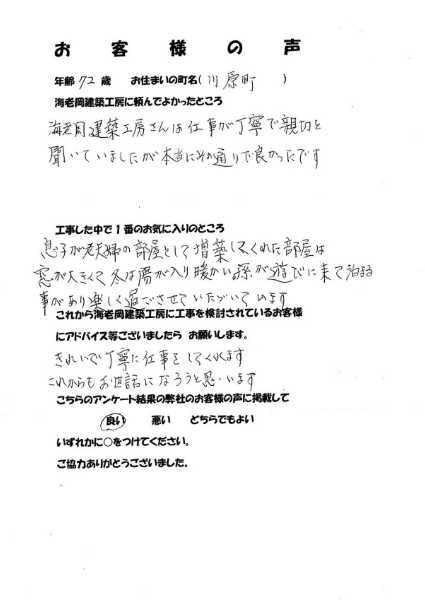 お客様の声
年齢 72 歳 お住まいの町名( 川原町 )
海老岡建築工房に頼んでよかったところ
海老岡建築工房さんは仕事が丁寧で親切と
聞いていましたが本当にその通りで良かったです
工事した中で1番のお気に入りのところ
息子が老夫婦の部屋として増築してくれた部屋は
窓が大きくて冬は陽が入り暖かい孫が遊びに来て泊る
事があり楽しく過ごさせていただいています
これから海老岡建築工房に工事を検討されているお客様
にアドバイス等ございましたら お願いします。
きれいで丁寧に仕事をしてくれます
これからもお世話になろうと思います
こちらのアンケート結果の弊社のお客様の声に掲載して
良い 悪い どちらでもよい
いずれかに○をつけてください。
ご協力ありがとうございました。